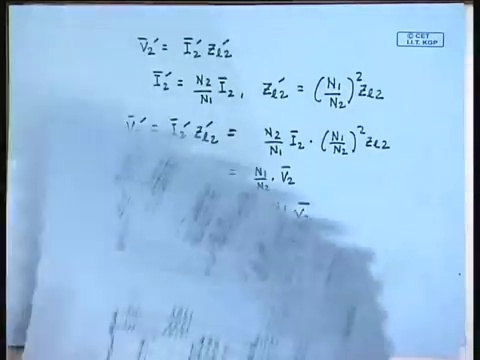 © CET
I.I.T. KGP
V̄₂′ = Ī₂′ Zℓ₂′
Ī₂′ = N₂/N₁ Ī₂, Zℓ₂′ = (N₁/N₂)² Zℓ₂
V̄₂′ = Ī₂′ Zℓ₂′ = N₂/N₁ Ī₂ · (N₁/N₂)² Zℓ₂
= N₁/N₂ · V̄₂
V̄₂